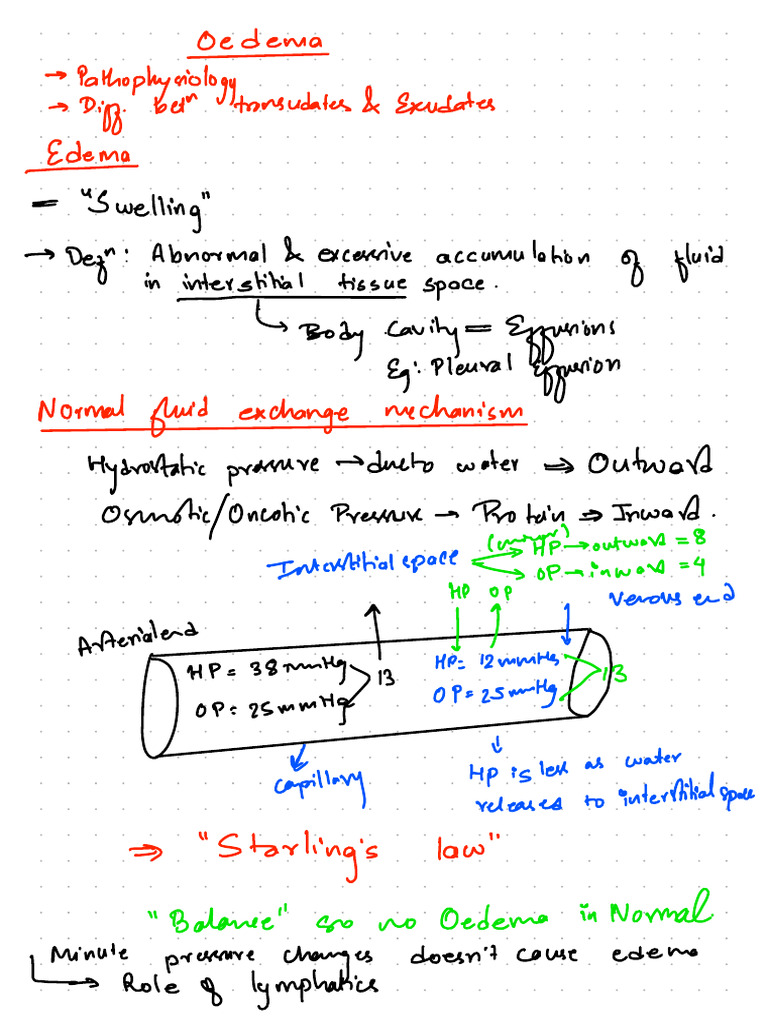 Oedema
→ Pathophysiology
→ Diff. betⁿ transudates & Exudates
Edema
= "Swelling"
→ Defⁿ: Abnormal & excessive accumulation of fluid
in interstitial tissue space.
↳ Body cavity = Effusions
Eg: Pleural Effusion
Normal fluid exchange mechanism
Hydrostatic pressure → due to water ⇒ Outward
Osmotic/Oncotic Pressure → Protein ⇒ Inward.
Interstitial space
(minor)
HP → outward = 8
OP → inward = 4
HP OP
Venous end
Arterial end
HP = 38 mmHg
OP = 25 mmHg
13
HP = 12 mmHg
OP = 25 mmHg
13
capillary
HP is less as water
releases to interstitial space
⇒ "Starling's law"
"Balance" so no Oedema in Normal
Minute pressure changes doesn't cause edema
→ Role of lymphatics